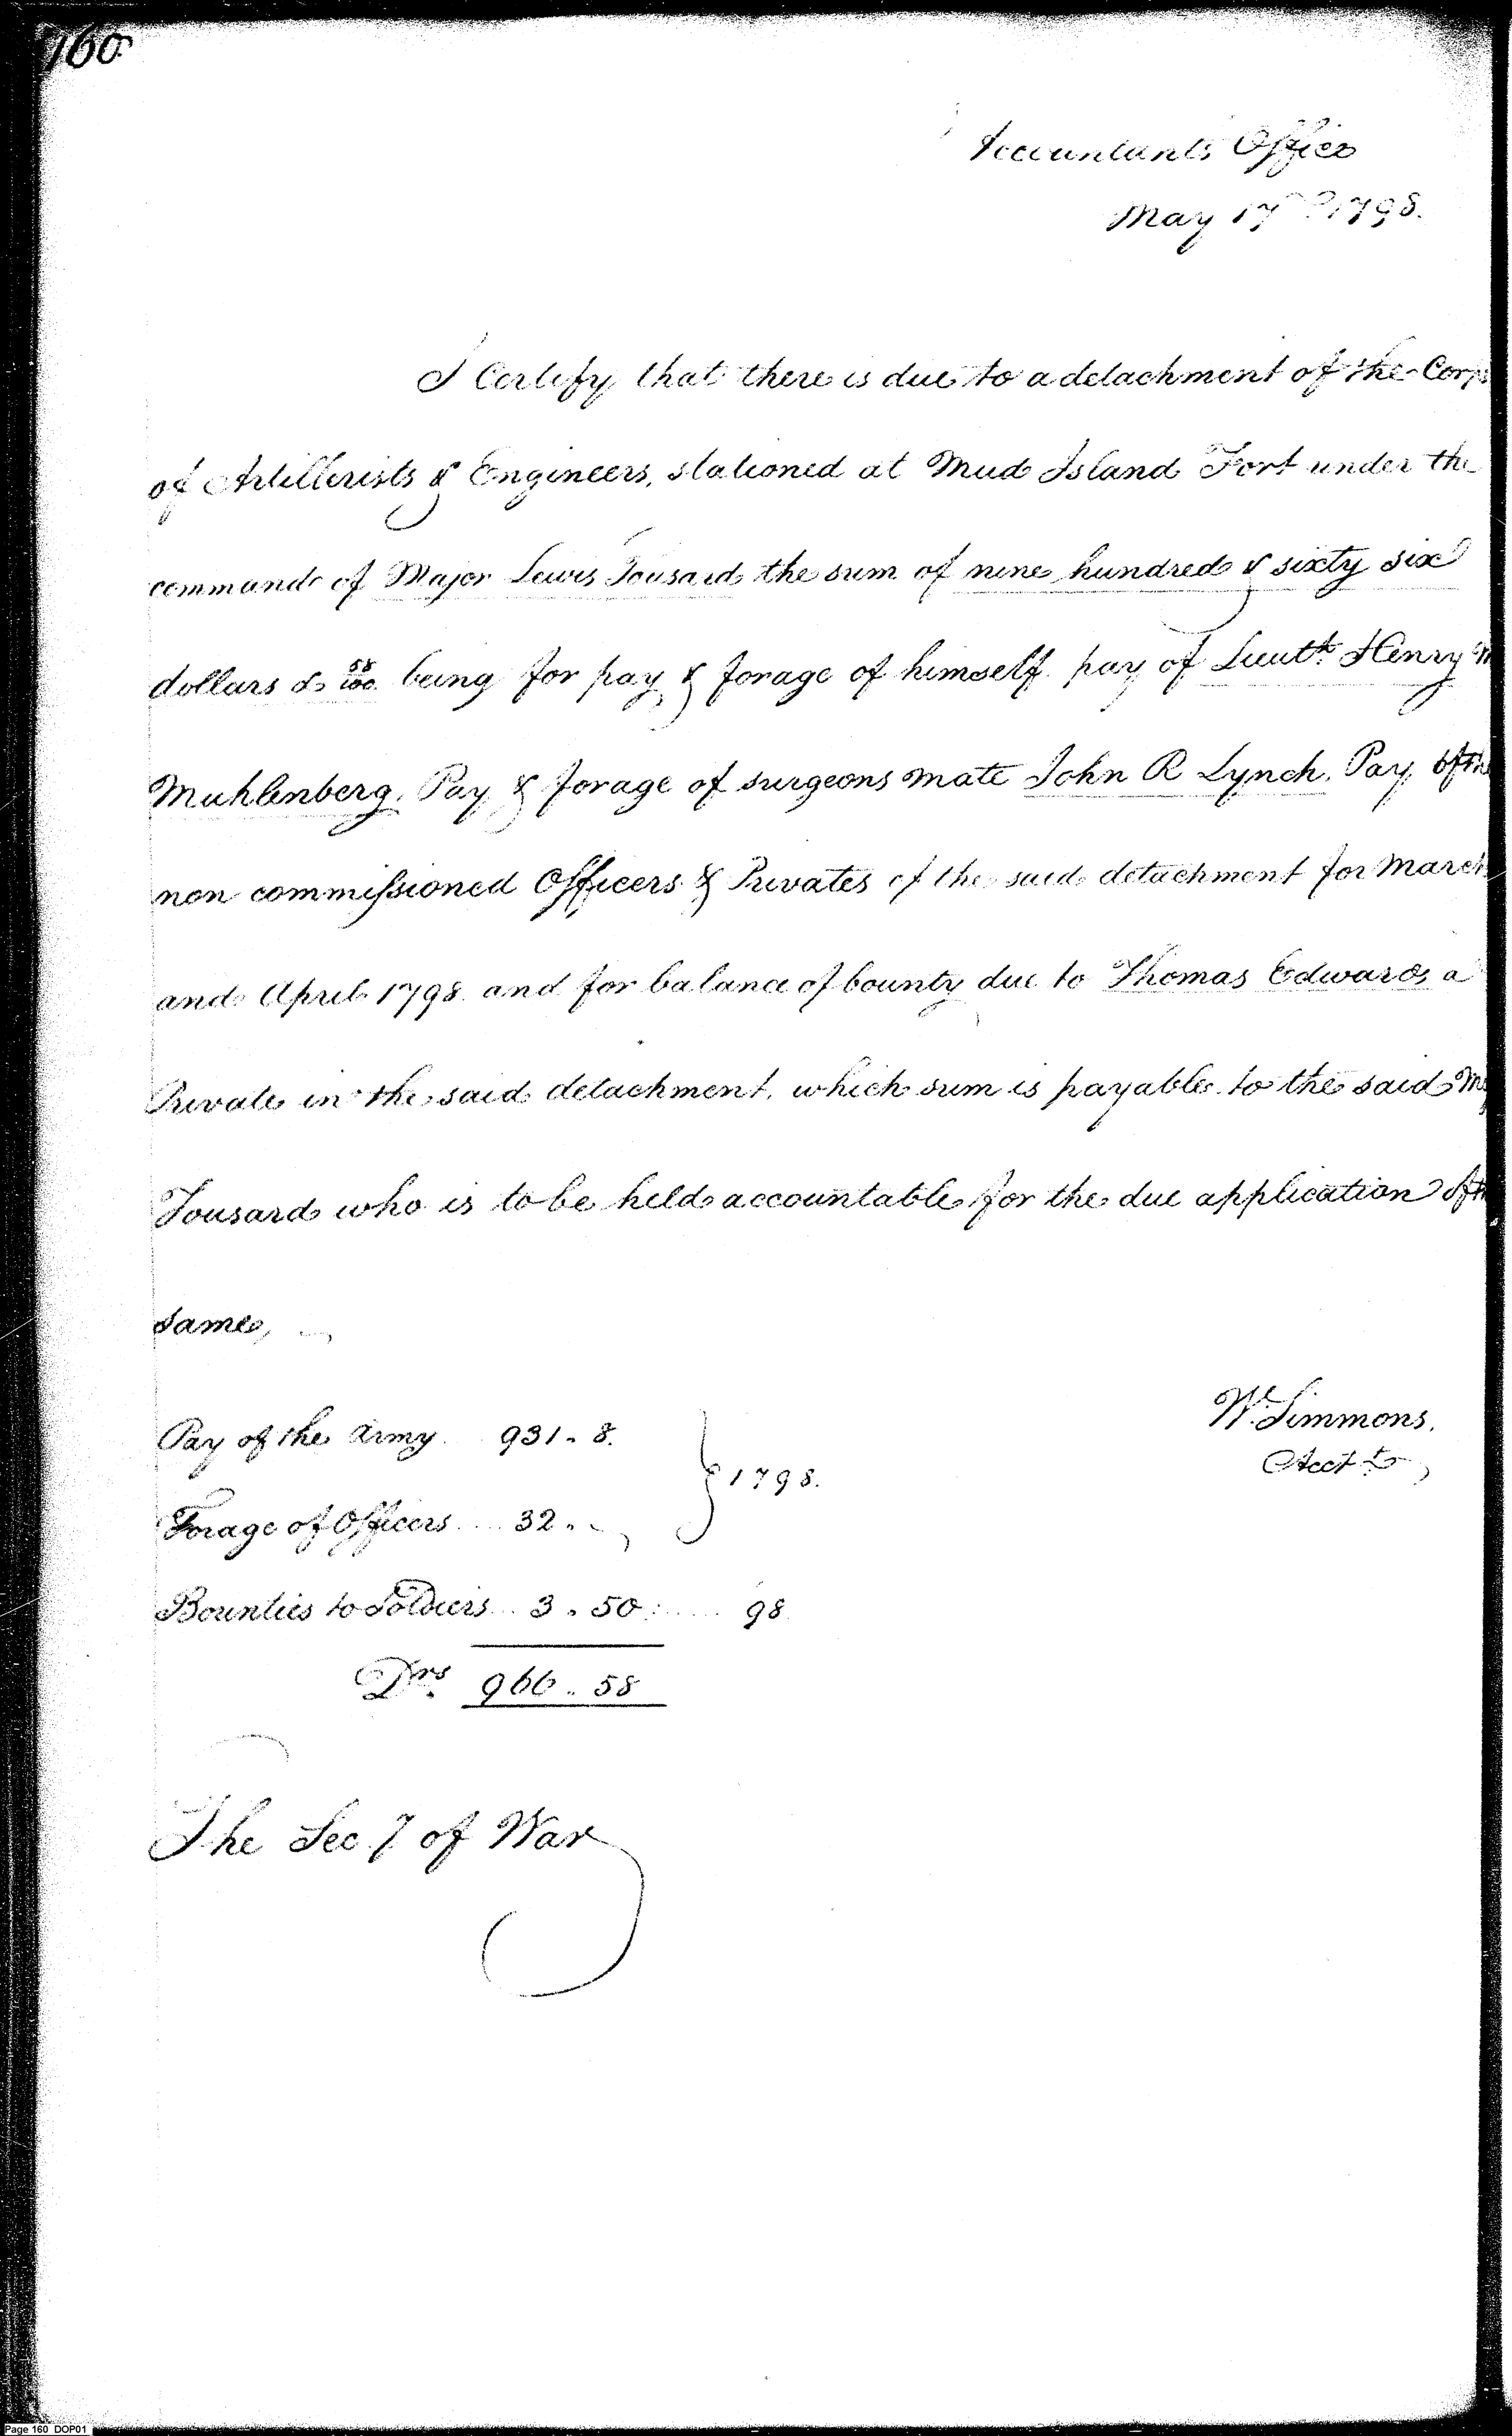 160
Accountants Office
May 17th 1798.
I Certify that there is due to a detachment of the Corps
of Artillerists & Engineers, stationed at Mud Island Fort under the
command of Major Lewis Tousard the sum of nine hundred & sixty six
dollars & 58/100 being for pay & forage of himself. pay of Lieutt. Henry M
Muhlenberg. Pay & forage of surgeons mate John R Lynch. Pay of the
non commissioned Officers & Privates of the said detachment for March
and April 1798. and for balance of bounty due to Thomas Edwards a
Private in the said detachment. which sum is payable to the said
Tousard who is to be held accountable for the due application of the
same,
Pay of the Army 931 . 8.
1798.
Forage of Officers .... 32 .
Bounties to Soldiers .. 3 . 50 : .... 98
Drs 966 . 58
W. Simmons.
Acctt
The Secy of War
Page 160 DOP01